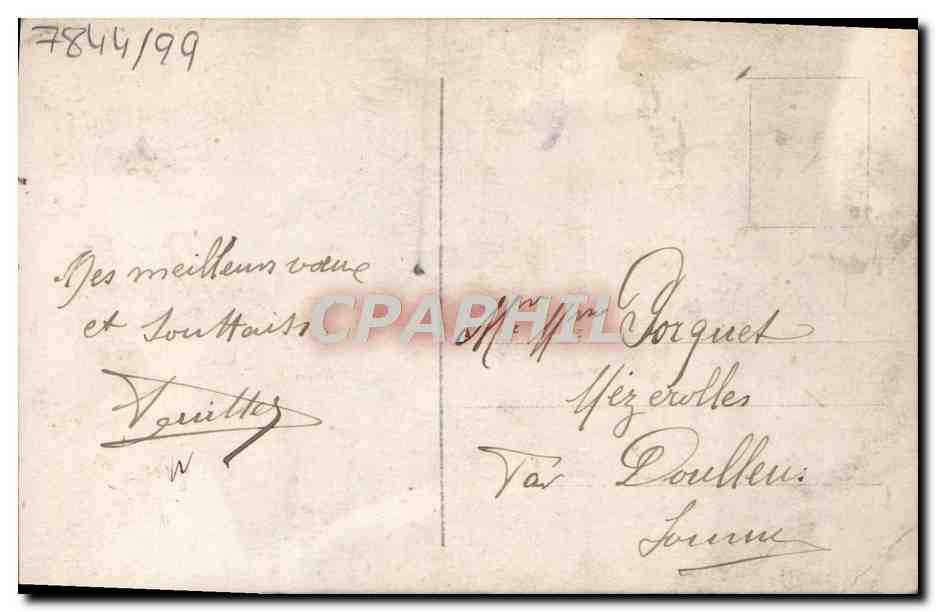 7844/99
Mes meilleurs vœux
et Souhaits
CPAPHIL
Mr Mme Porquet
Mézerolles
Par Doullens
Somme